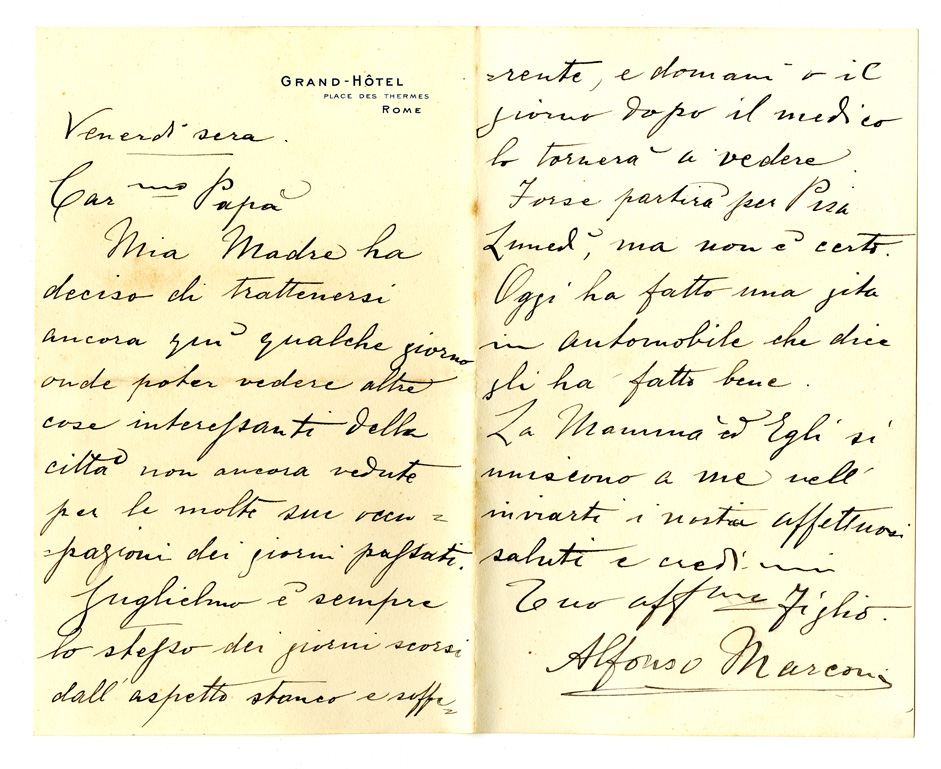 GRAND-HÔTEL
PLACE DES THERMES
ROME
Venerdì sera.
Car mo Papà
Mia Madre ha
deciso di trattenersi
ancora quì qualche giorno
onde poter vedere altre
cose interessanti della
città non ancora vedute
per le molte sue occu=
=pazioni dei giorni passati.
Guglielmo è sempre
lo stesso dei giorni scorsi
dall'aspetto stanco e soffe=
=rente, e domani o il
giorno dopo il medico
lo tornerà a vedere
Forse partirà per Pisa
Lunedì, ma non è certo.
Oggi ha fatto una gita
in automobile che dice
gli ha fatto bene.
La Mamma ed Egli si
uniscono a me nell'
inviarti i nostri affettuosi
saluti e credimi
Tuo aff mo Figlio.
Alfonso Marconi